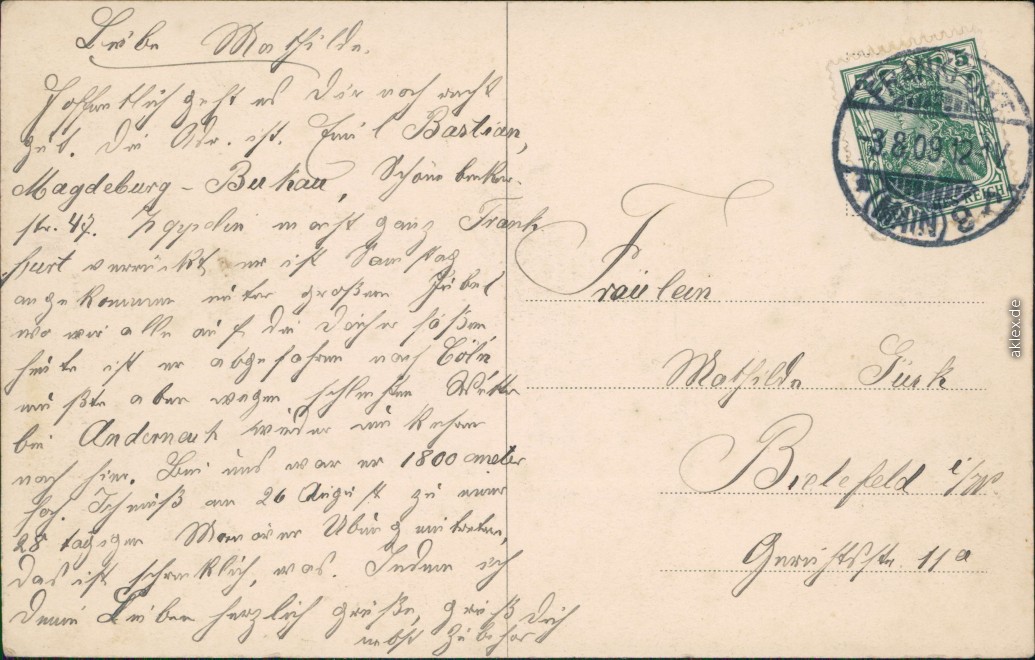 Liebe Mathilde.
Hoffentlich geht es Dir noch recht
gut. Die Adr. ist. Emil Bastian,
Magdeburg - Bukau, Schönebecker-
str. 47. Zeppelin macht ganz Frank
furt verrückt, er ist Samstag
angekommen unter großem Jubel
wo wir alle auf die Dächer saßen,
heute ist er abgefahren nach Cöln
mußte aber wegen schlechten Wetter
bei Andernach wieder umkehren
nach hier. Bei uns war er 1800 meter
hoch. Ich muß am 26 August zu einer
28 tägigen Manöver Übung eintreten,
das ist schrecklich, was. Indem ich
Deine Lieben herzlich grüße, grüß Dich
nebst Zubehör
FRANKFURT
3.8.09.12-1N
(MAIN) 8
5 5
REICH
Fräulein
Mathilde Türk
Bielefeld i/W.
Gerichtsstr. 11a
aklex.de